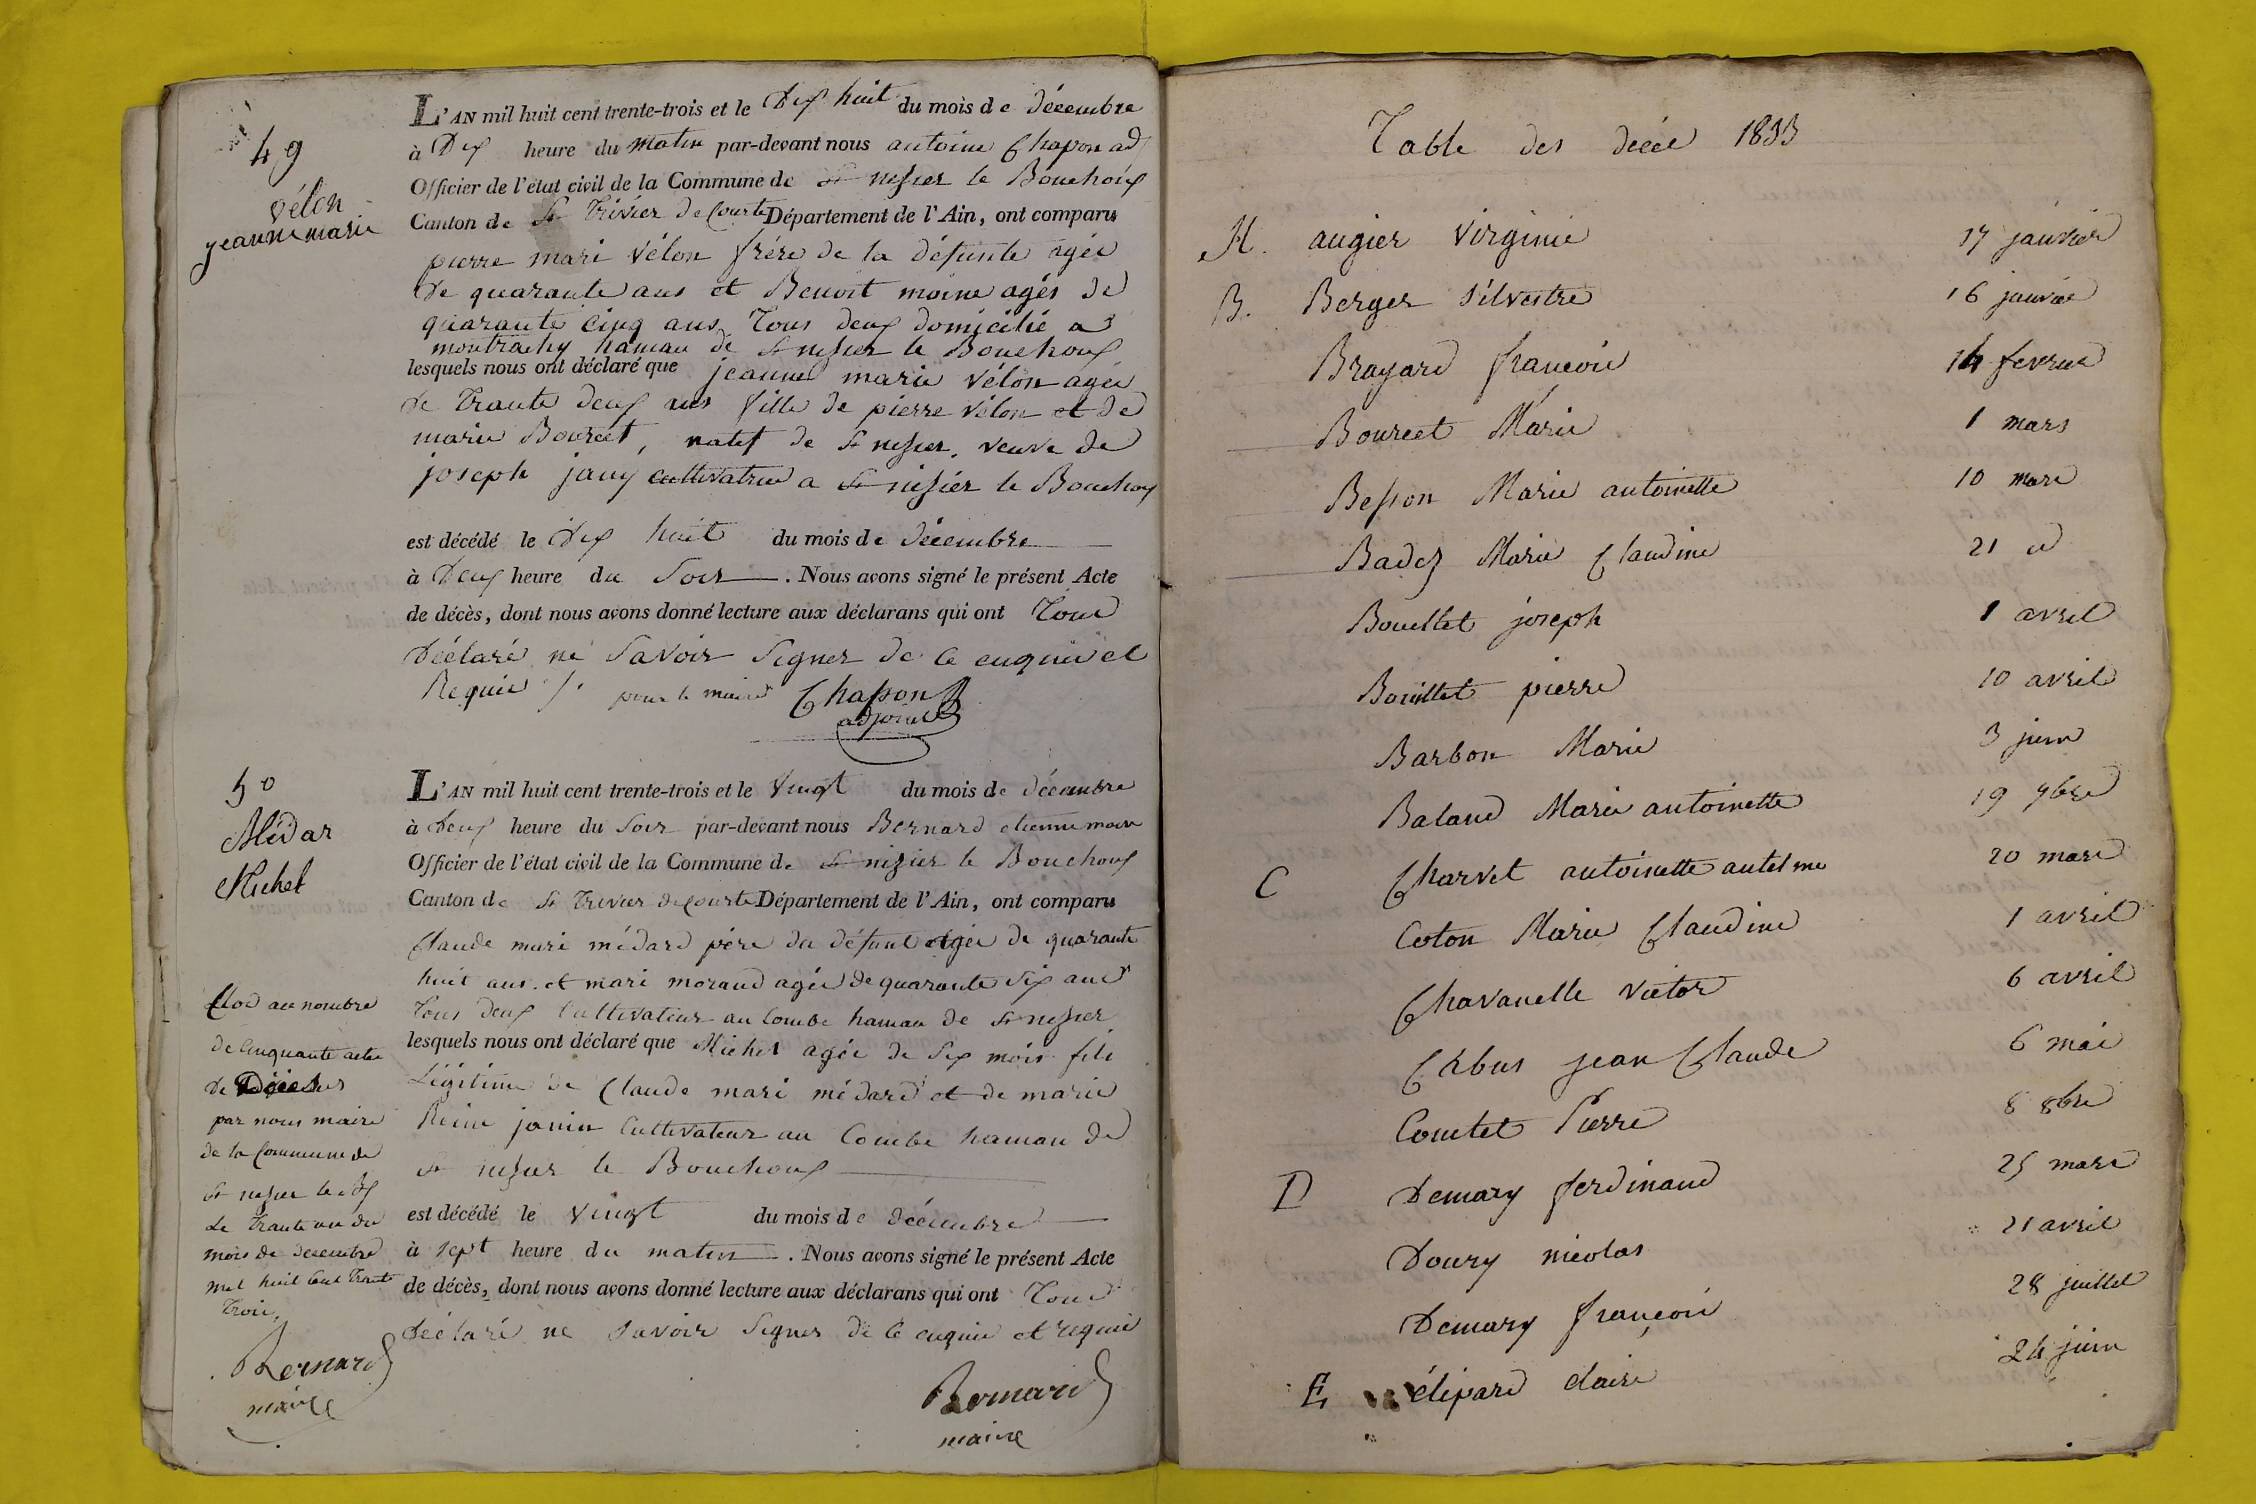 49
vélon
jeanne marie
L'AN mil huit cent trente-trois et le Dix huit du mois de décembre
à Dix heure du matin par-devant nous antoine Chapon adj
Officier de l'état civil de la Commune de St nisier le Bouchoux
Canton de St Trivier de Courte Département de l'Ain, ont comparu
pierre mari vélon frére de la défunte agée
de quarante ans et Benoit moine agés de
quarante cinq ans Tous deux domicilié a
montrachy hamau de St nisier le Bouchoux
lesquels nous ont déclaré que jeanne marie vélon agée
de Trante deux ans fille de pierre vélon et de
marie Bourcet, natif de St nisier. veuve de
joseph jany cultivatrice a St nisier le Bouchoux
est décédé le dix huit du mois de décembre
à Deux heure du Soir. Nous avons signé le présent Acte
de décès, dont nous avons donné lecture aux déclarans qui ont Tous
Déclaré ne Savoir Signer de ce enquis et
Requis /. pour le maire Chapon
adjoint
50
Médar
Michel
L'AN mil huit cent trente-trois et le Vingt du mois de décembre
à Deux heure du Soir par-devant nous Bernard etienne maire
Officier de l'état civil de la Commune de St nizier le Bouchoux
Canton de St Trivier de Courte Département de l'Ain, ont comparu
Claude mari médard pére du défunt agée de quarante
huit ans. et mari morand agée de quarante Six ans
Tous deux Cultivateur au Combe hamau de St nisier
lesquels nous ont déclaré que Michel agée de Six mois fils
Légitime de Claude mari médard et de marie
Reine janin Cultivateur au Combe hamau de
St nisier le Bouchoux
est décédé le vingt du mois de décembre
à sept heure du matin. Nous avons signé le présent Acte
de décès, dont nous avons donné lecture aux déclarans qui ont Tous
Déclaré ne Savoir Signer de ce enquis et requis
Bernard
maire
Clos au nombre
de Cinquante actes
de Décès
par nous maire
de la Commune de
St nisier le Bx
Le Trante un du
mois de decembre
mil huit Cent Trente
Trois,
Bernard
maire
Table des décés 1833
A. augier virginie 17 janvier
B. Berger Silvestre 16 janvier
Brayard françois 14 fevrier
Bourcet Marie 1 mars
Besson Marie antoinette 10 mars
Badez Marie Claudine 21 id
Bouillet joseph 1 avril
Bouillet pierre 10 avril
Barbon Marie 3 juin
Baland Marie antoinette 19 9bre
C Charvet antoinette antelme 20 mars
Coton Marie Claudine 1 avril
Chavanelle victor 6 avril
Crbus jean Claude 6 mai
Comtet Pierre 8 8bre
D Demary ferdinand 25 mars
Doury nicolas 21 avril
Demary françois 28 juillet
E élipard claire 24 juin